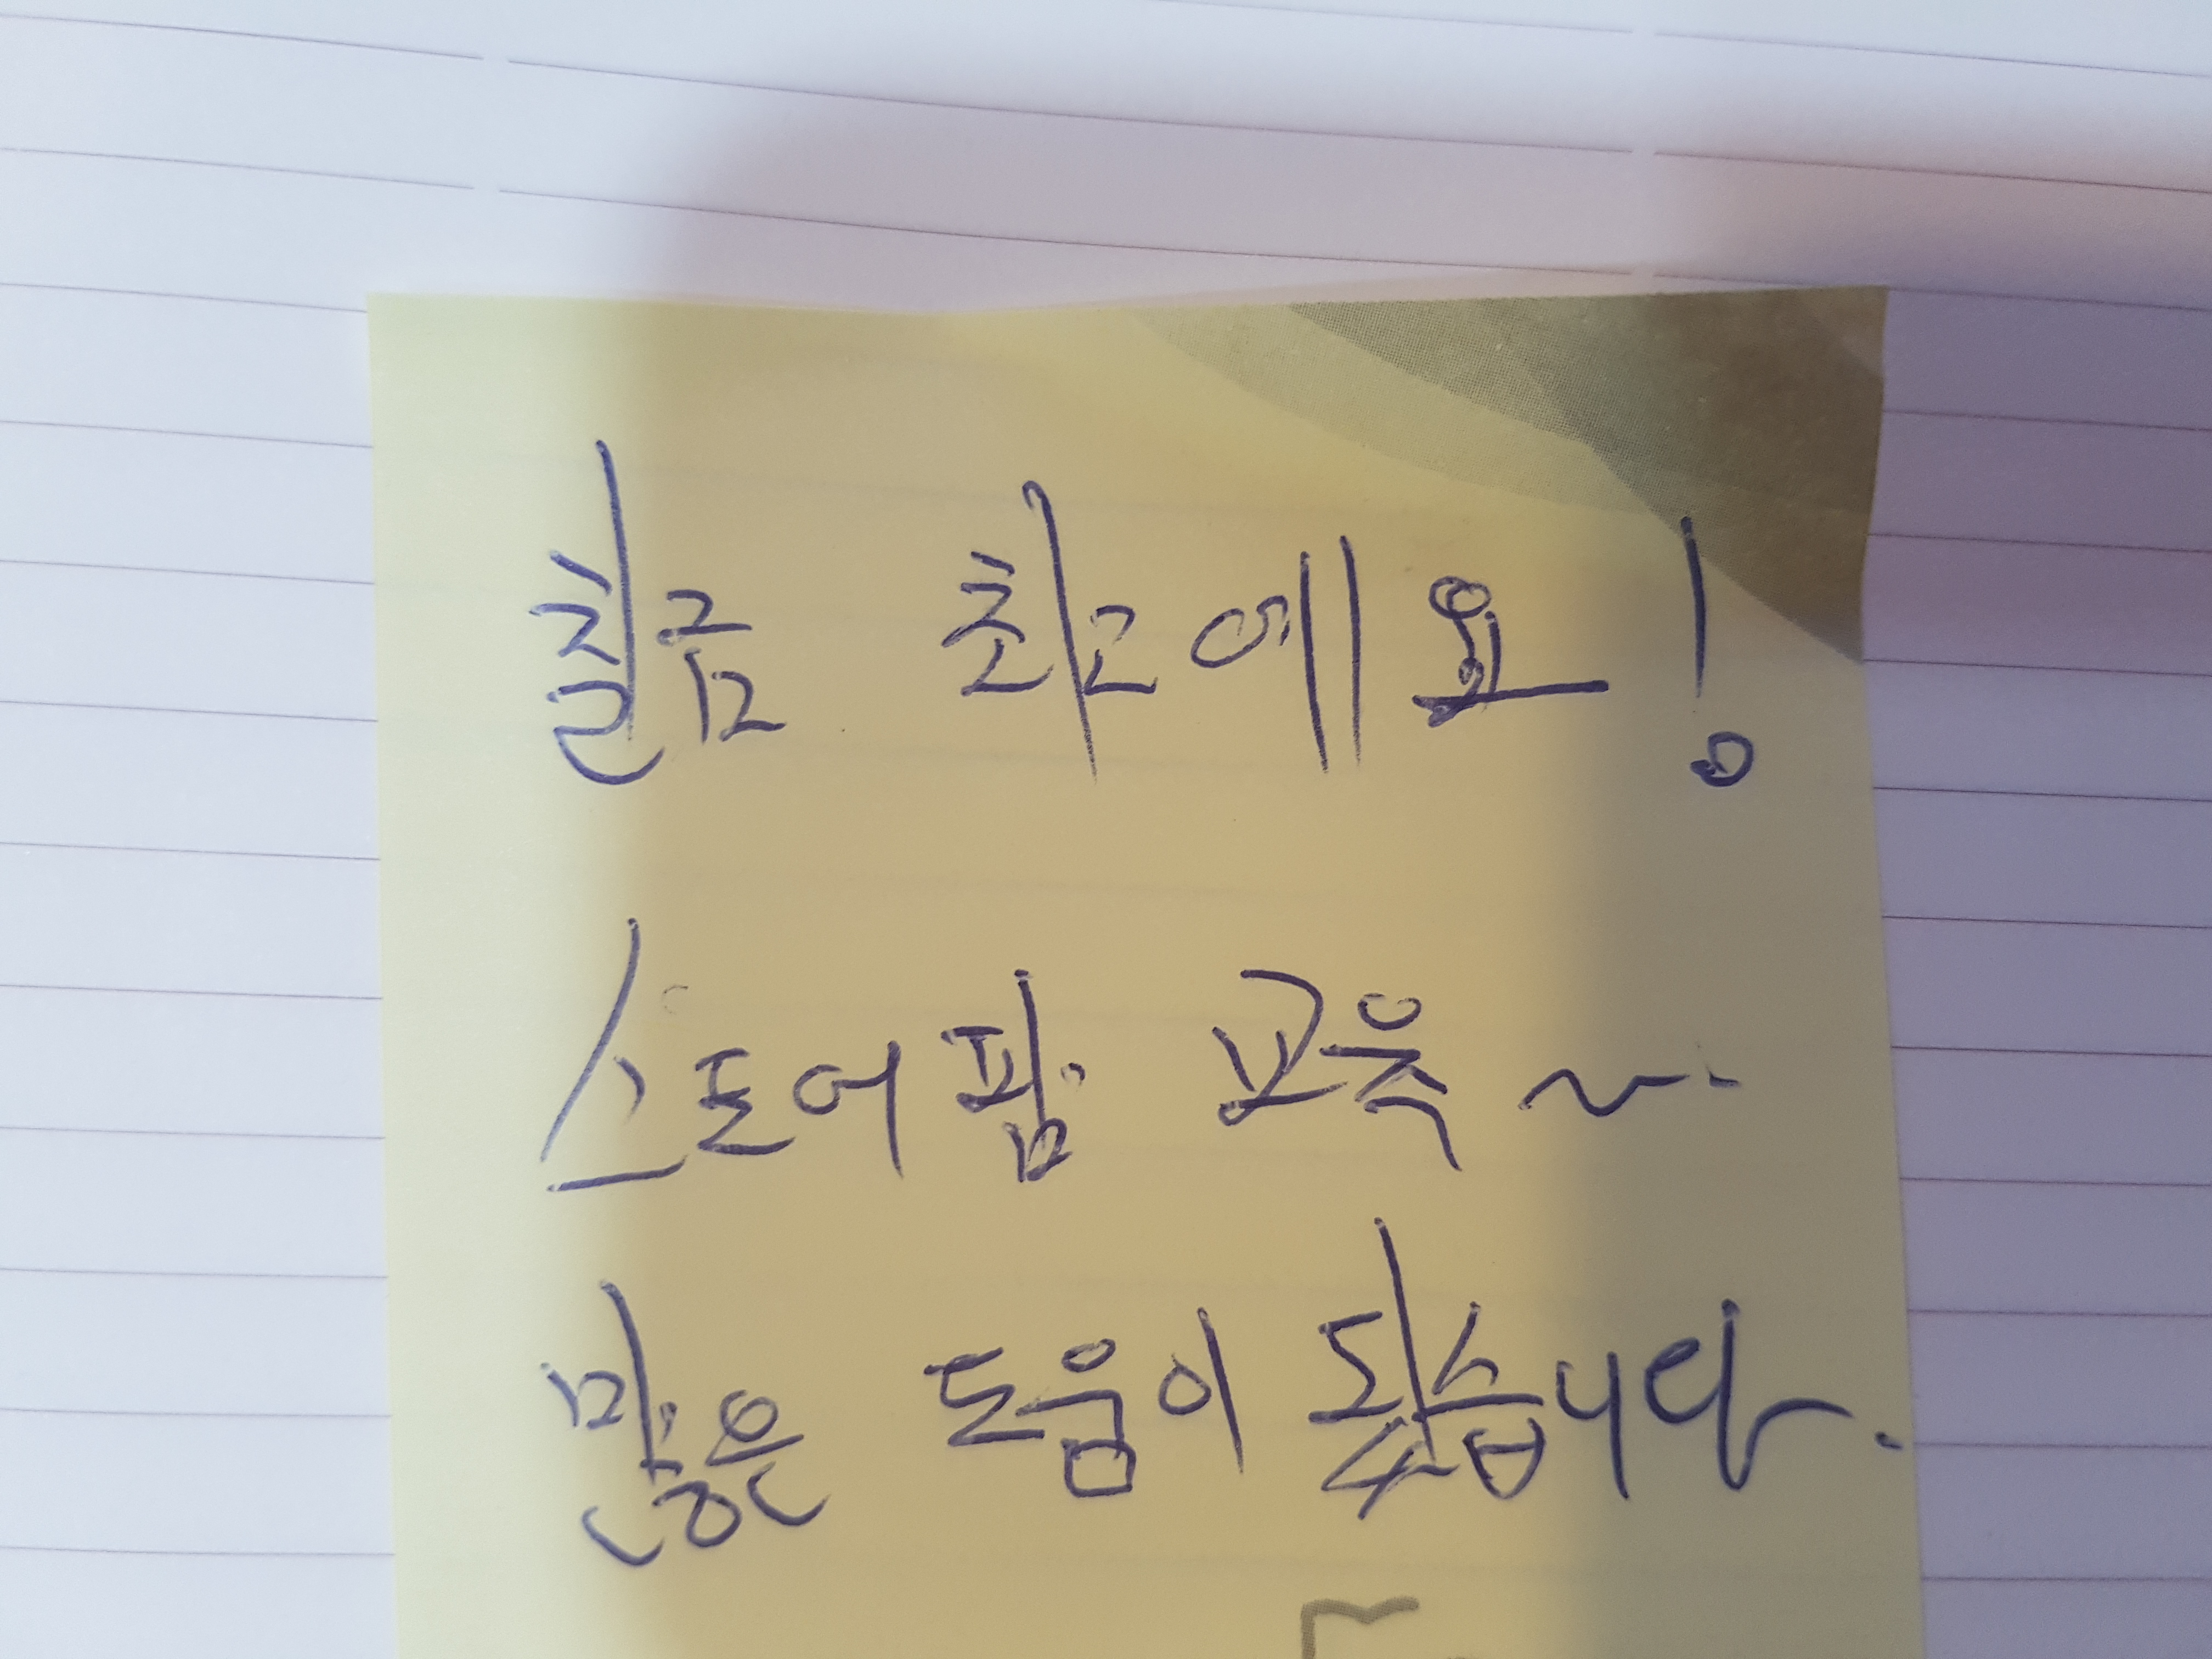 칠금 최고에요!
스토어팜 교육~
많은 도움이 됐습니다.